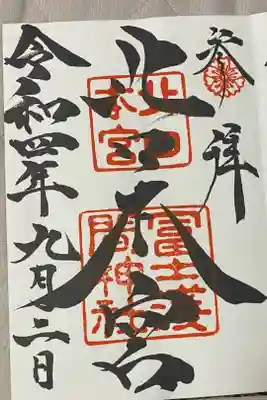 参拝
北口本宮
北口
本宮
冨士浅
間神社
令和四年九月二日